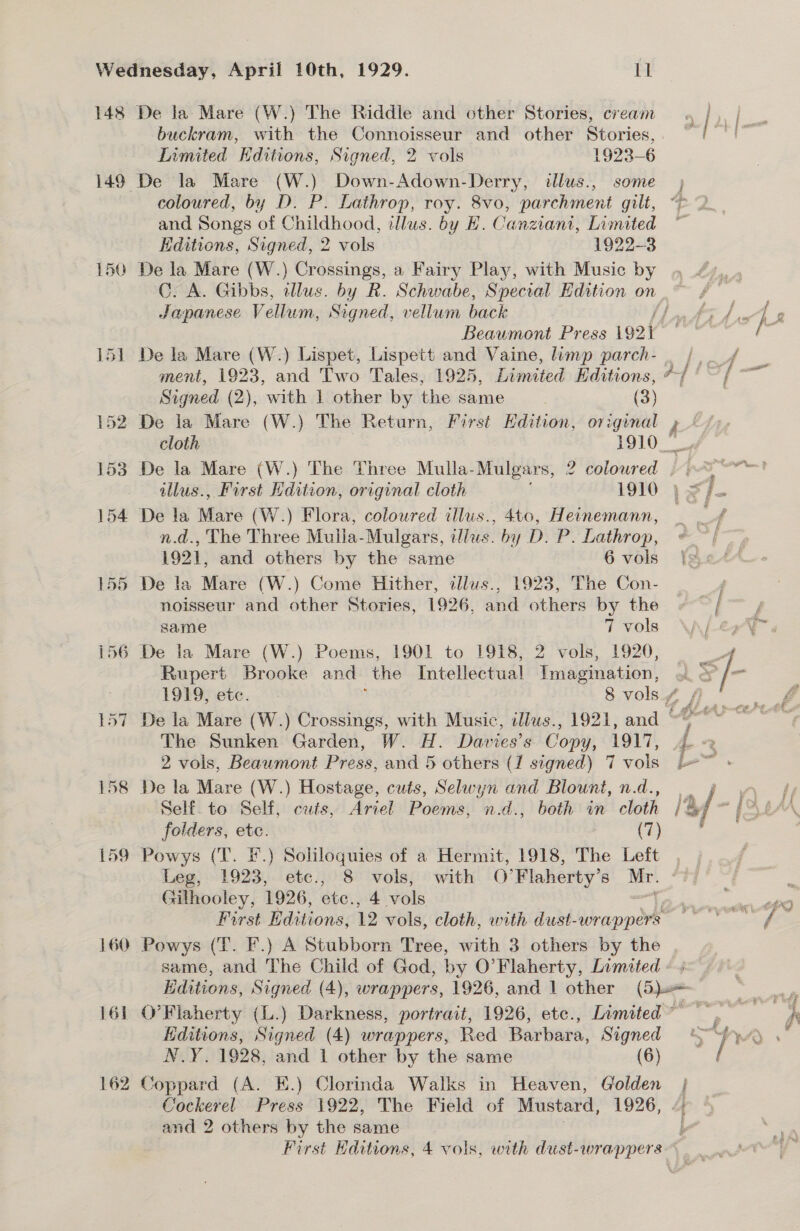 Wednesday, April 10th, 1929. 11
148 De la Mare (W.) The Riddle and other Stories, cream
buckram, with the Connoisseur and other Stories,
Limited Editions, Signed, 2 vols 1923-6
149 De la Mare (W.) Down-Adown-Derry, illus., some
coloured, by D. P. Lathrop, roy. 8vo, parchment gilt,
and Songs of Childhood, illus. by E. Canziani, Limited
Editions, Signed, 2 vols 1922-3
150 De la Mare (W.) Crossings, a Fairy Play, with Music by
C. A. Gibbs, illus. by R. Schwabe, Special Edition on
Japanese Vellum, Signed, vellum back
Beaumont Press 1921
151 De la Mare (W.) Lispet, Lispett and Vaine, limp parch-
ment, 1923, and Two Tales, 1925, Limited Editions,
Signed (2), with 1 other by the same (3)
152 De la Mare (W.) The Return, First Edition, original
cloth 1910
153 De la Mare (W.) The Three Mulla-Mulgars, 2 coloured
illus., First Edition, original cloth 1910
154 De la Mare (W.) Flora, coloured illus., 4to, Heinemann,
n.d., The Three Mulla-Mulgars, illus. by D. P. Lathrop,
1921, and others by the same 6 vols
155 De la Mare (W.) Come Hither, illus., 1923, The Con-
noisseur and other Stories, 1926, and others by the
same 7 vols
156 De la Mare (W.) Poems, 1901 to 1918, 2 vols, 1920,
Rupert Brooke and the Intellectual Imagination,
1919, etc. 8 vols
157 De la Mare (W.) Crossings, with Music, illus., 1921, and
The Sunken Garden, W. H. Davies's Copy, 1917,
2 vols, Beaumont Press, and 5 others (1 signed) 7 vols
158 De la Mare (W.) Hostage, cuts, Selwyn and Blount, n.d.,
Self to Self, cuts, Ariel Poems, n.d., both in cloth
folders, etc. (7)
159 Powys (T. F.) Soliloquies of a Hermit, 1918, The Left
Leg, 1923, etc., 8 vols, with O'Flaherty's Mr.
Gilhooley, 1926, etc., 4 vols
First Editions, 12 vols, cloth, with dust-wrappers
160 Powys (T. F.) A Stubborn Tree, with 3 others by the
same, and The Child of God, by O'Flaherty, Limited
Editions, Signed (4), wrappers, 1926, and 1 other (5)
161 O'Flaherty (L.) Darkness, portrait, 1926, etc., Limited
Editions, Signed (4) wrappers, Red Barbara, Signed
N.Y. 1928, and 1 other by the same (6)
162 Coppard (A. E.) Clorinda Walks in Heaven, Golden
Cockerel Press 1922, The Field of Mustard, 1926,
and 2 others by the same
First Editions, 4 vols, with dust-wrappers